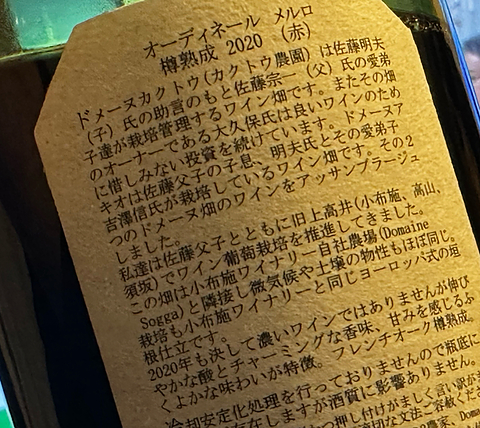 オーディネール メルロ
樽熟成 2020 (赤)
ドメーヌカクトウ(カクトウ農園)は佐藤明夫
(子)氏の助言のもと佐藤宗一(父)氏の愛弟
子達が栽培管理するワイン畑です。またその畑
のオーナーである大久保氏は良いワインのため
に惜しみない投資を続けています。ドメーヌア
キオは佐藤父子の子息、明夫氏とその愛弟子
吉澤信氏が栽培しているワイン畑です。その2
つのドメーヌ畑のワインをアッサンブラージュ
しました。
私達は佐藤父子とともに旧上高井(小布施、高山、
須坂)でワイン葡萄栽培を推進してきました。
この畑は小布施ワイナリー自社農場(Domaine
Sogga)と隣接し微気候や土壌の物性もほぼ同じ。
栽培も小布施ワイナリーと同じヨーロッパ式の垣
根仕立てです。
2020年も決して濃いワインではありませんが伸び
やかな酸とチャーミングな香味、甘みを感じるふ
くよかな味わいが特徴。フレンチオーク樽熟成。
冷却安定化処理を行っておりませんので瓶底に
在しますが酒質に影響ありません。
つ押し付けがましく言い訳がま
切な文法ご容赦くださ
農家、Dom